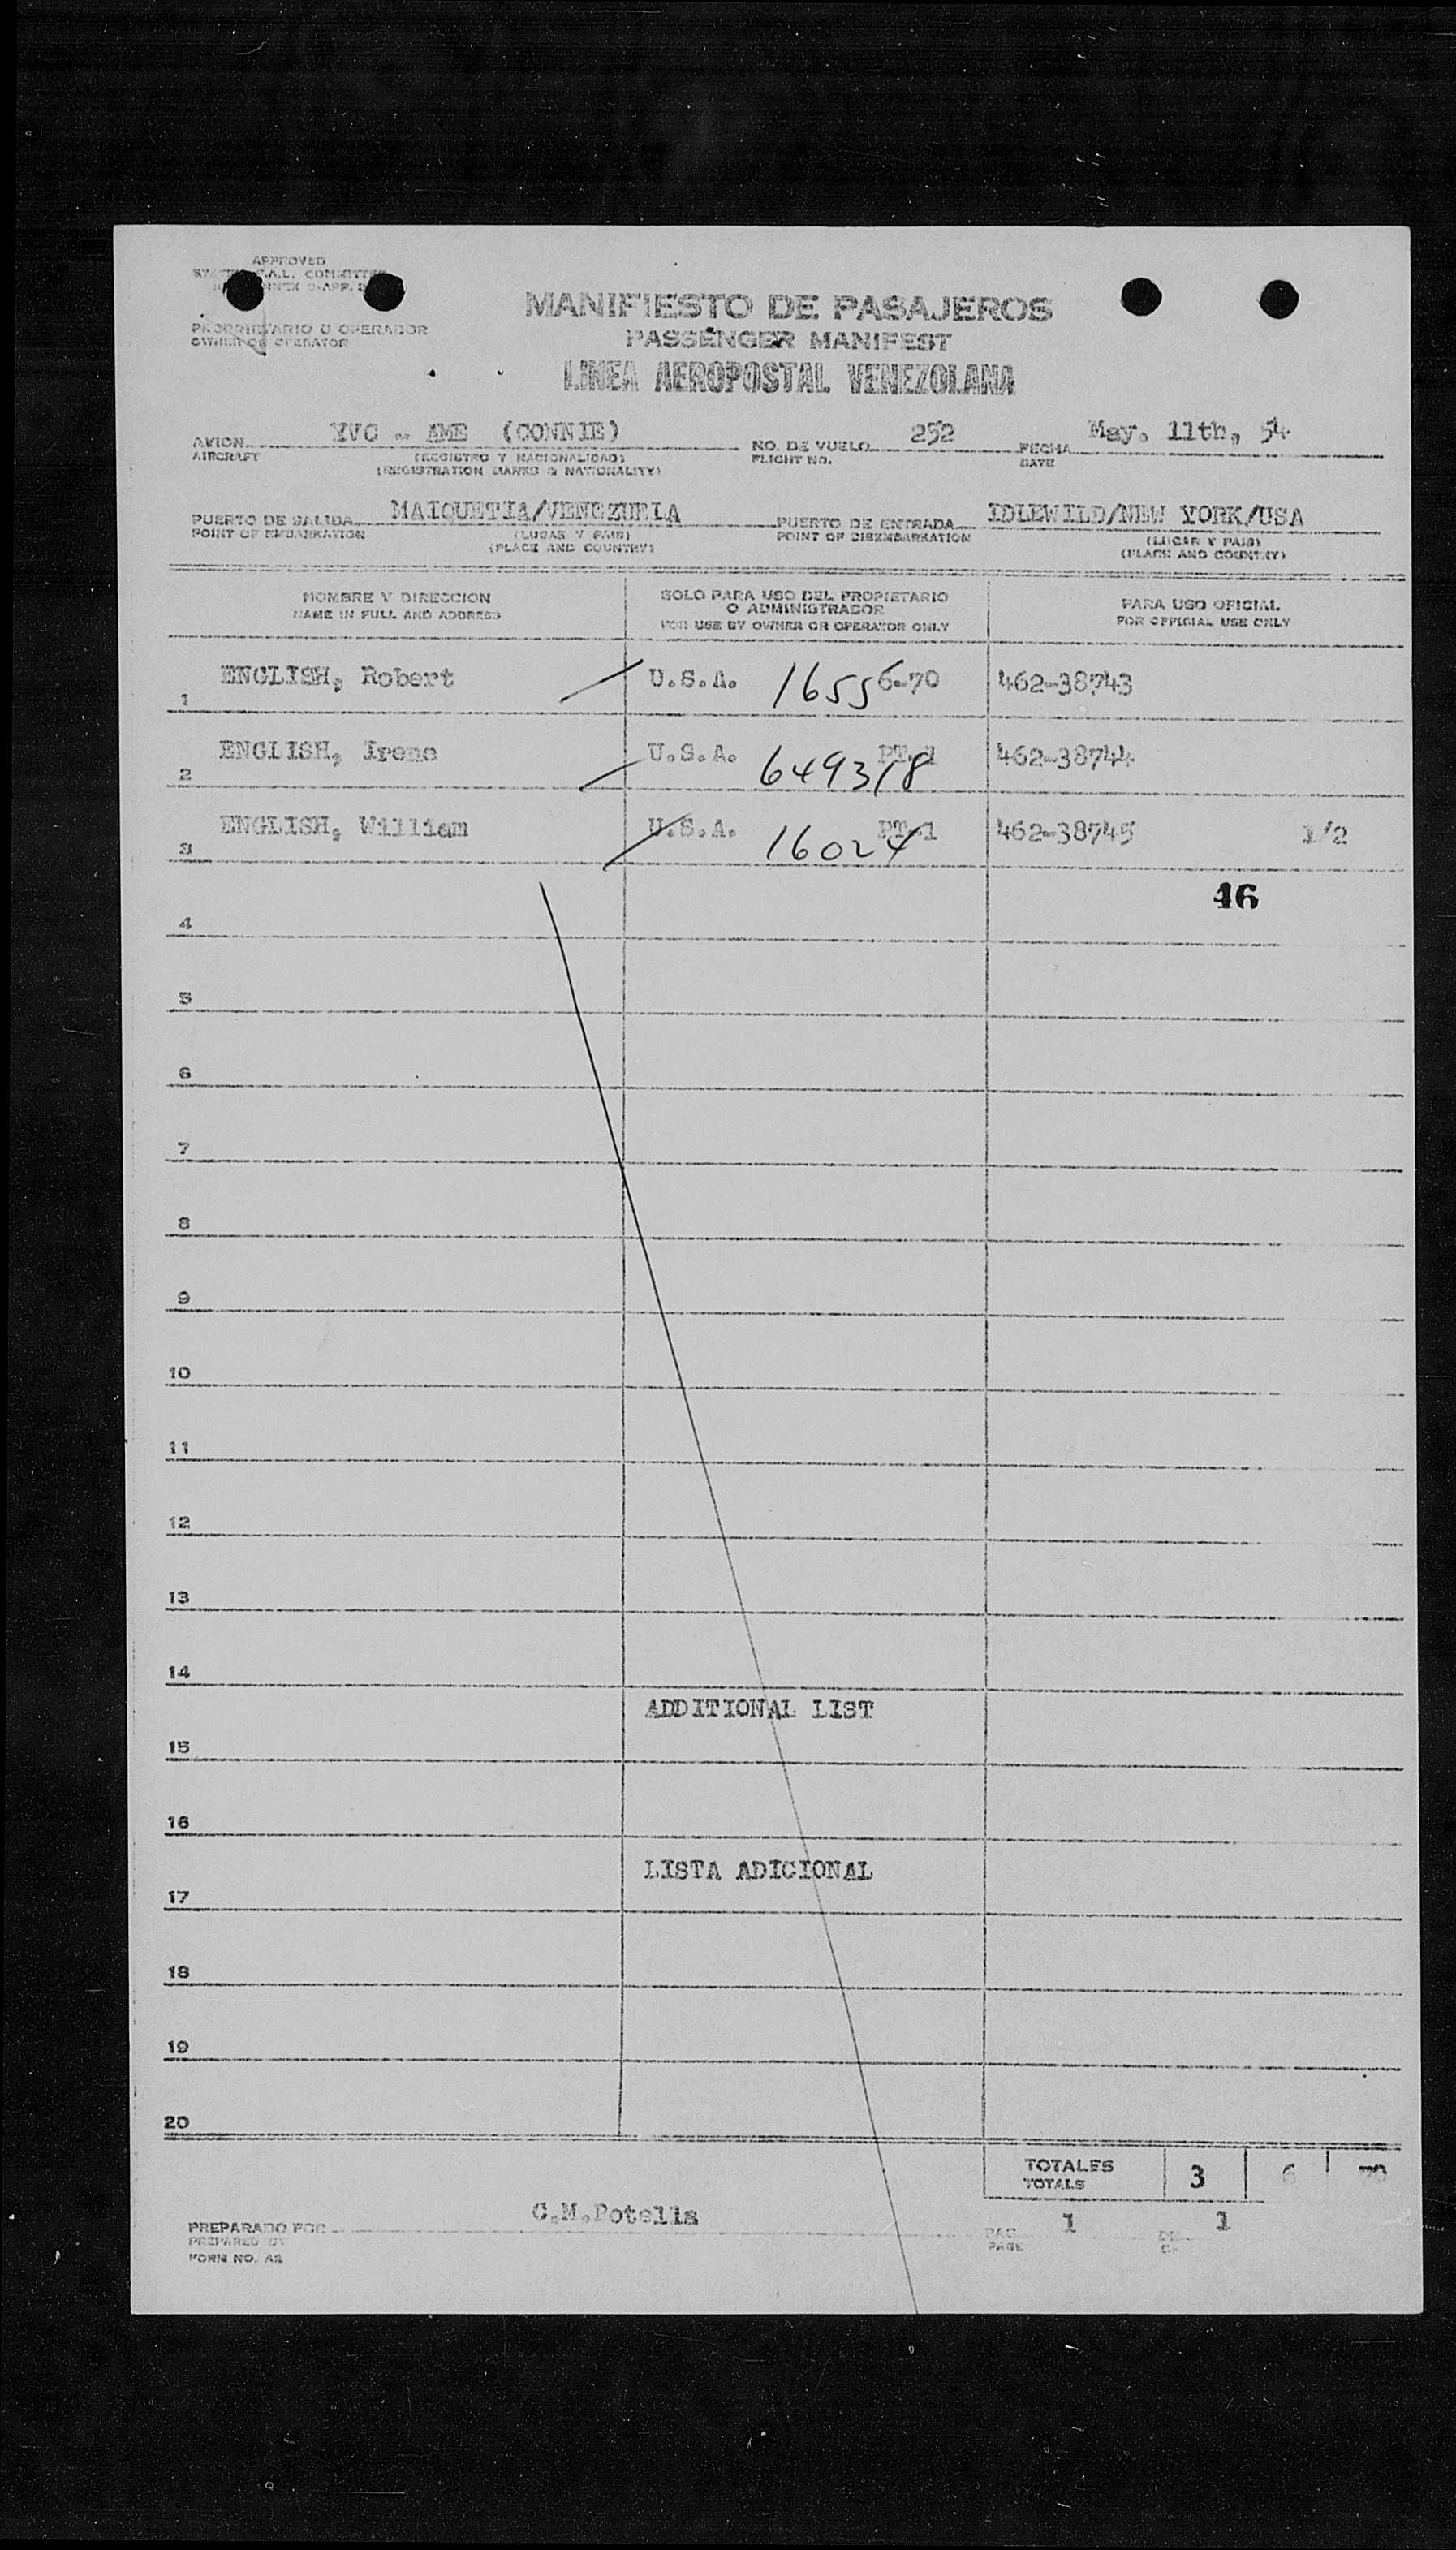 APPROVED
MANIFIESTO DE PASAJEROS
PROPRIETARIO U OPERADOR
OWNER OR OPERATOR
PASSENGER MANIFEST
LINEA AEROPOSTAL VENEZOLANA
AVION YVC - AME (CONNIE) NO. DE VUELO 252 FECHA May. 11th, 54
AIRCRAFT (REGISTRO Y NACIONALIDAD) FLIGHT NO. DATE
(REGISTRATION MARKS & NATIONALITY)
PUERTO DE SALIDA MAIQUETIA/VENEZUELA PUERTO DE ENTRADA IDLEWILD/NEW YORK/USA
POINT OF EMBARKATION (LUGAR Y PAIS) POINT OF DISEMBARKATION (LUGAR Y PAIS)
(PLACE AND COUNTRY) (PLACE AND COUNTRY)
NOMBRE Y DIRECCION SOLO PARA USO DEL PROPIETARIO PARA USO OFICIAL
O ADMINISTRADOR
NAME IN FULL AND ADDRESS FOR USE BY OWNER OR OPERATOR ONLY FOR OFFICIAL USE ONLY
1 ENGLISH, Robert U.S.A. 1655 6-70 462-38743
2 ENGLISH, Irene U.S.A. 649318 462-38744
3 ENGLISH, William U.S.A. 16024 PT-1 462-38745 1/2
46
4
5
6
7
8
9
10
11
12
13
14
ADDITIONAL LIST
15
16
LISTA ADICIONAL
17
18
19
20
TOTALES 3 6 70
TOTALS
PREPARADO POR C.M.Potella PAG. 1 DE 1
PREPARED BY PAGE OF
FORM NO. A2